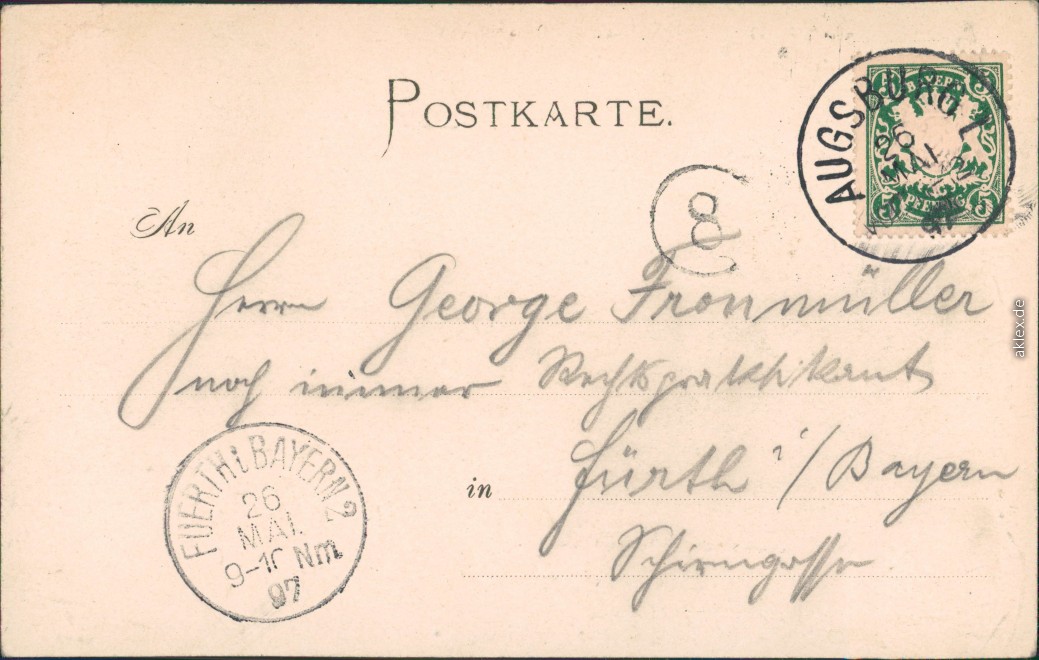 POSTKARTE.
AUGSBURG 1
26
MAI
97
BAYERN
5 5
PFENNIG
5 5
8
An
Herrn George Fronmüller
noch immer Rechtspraktikant
in Fürth i/Bayern
Schirmgasse
FUERTH i. BAYERN 2
26
MAI.
9-10 Nm
97
aklex.de